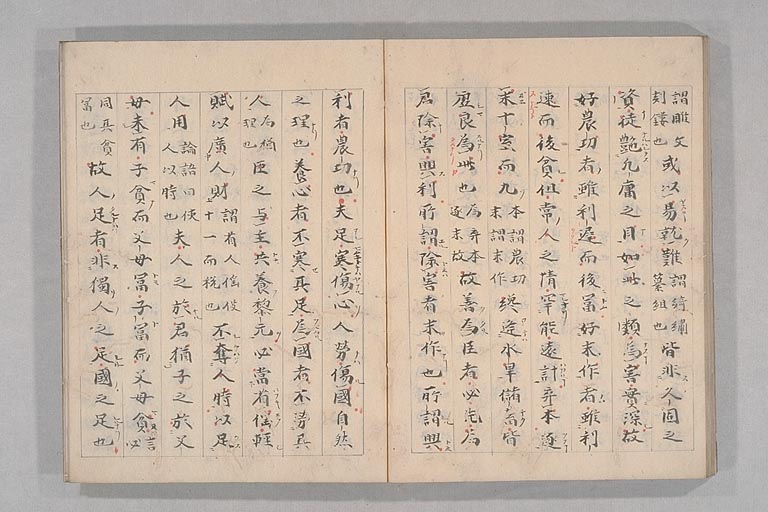 謂雕文刻鏤也或以易就難謂綺繡纂組也皆非久固之
資徒艶凡庸之目如此之類為害實深故
好農功者雖利遲而後冨好末作者雖利
速而後貧但常人之情罕能遠計弃本逐
末十室而九本謂農功末謂末作纔逢水旱儲畜皆
虛良為此也為弃本逐末故故善為臣者必先為
君除害興利所謂除害者末作也所謂興
利者農功也夫足寒傷心人勞傷國自然
之理也養心者不寒其足為國者不勞其
人為猶理也臣之与主共養黎元必當省徭輕
賦以廣人財謂省人徭役十一而稅也不奪人時以足
人用論語曰使人以時也夫人之於君猶子之於父
母未有子貧而父母冨子冨而父母貧言必
同其貧冨也故人足者非獨人之足國之足也